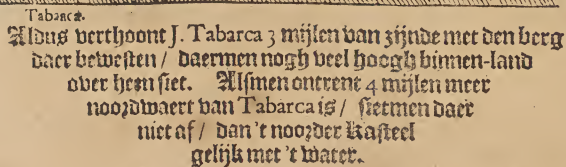 Tabarca.
Aldus verthoont J. Tabarca 3 mijlen van zijnde met den berg
daer bewesten / daermen nogh veel hoogh binnen-land
over hem siet. Alsmen ontrent 4 mijlen meer
noordwaert van Tabarca is / sietmen daer
niet af / dan 't noorder Kasteel
gelijk met 't water.